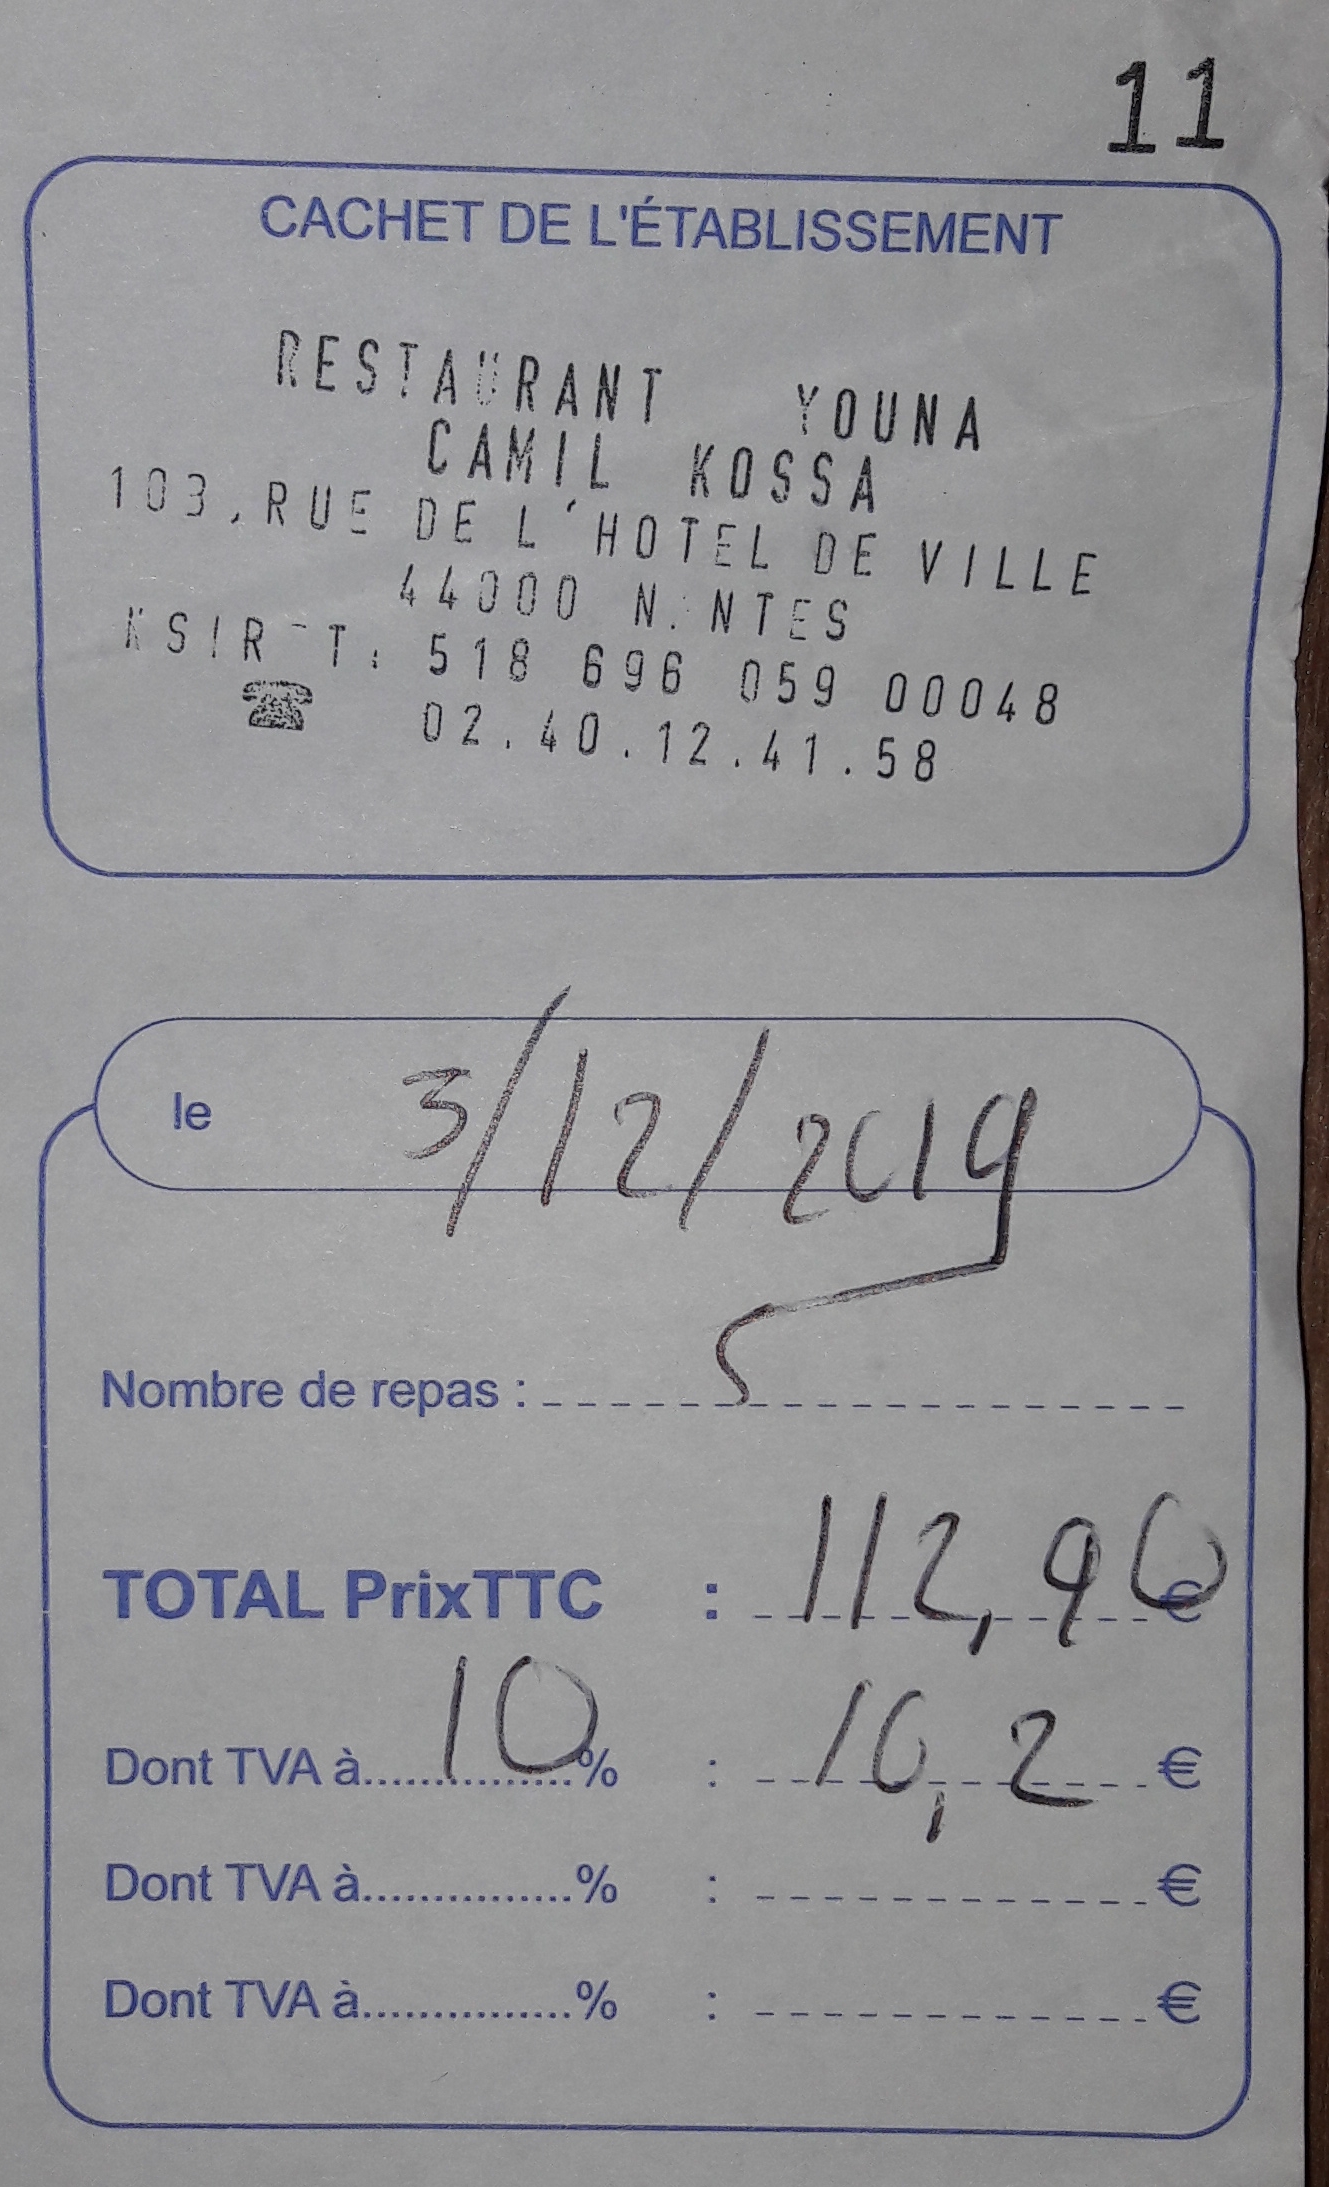 11
CACHET DE L'ÉTABLISSEMENT
RESTAURANT YOUNA
CAMIL KOSSA
103, RUE DE L'HOTEL DE VILLE
44000 N.NTES
518 696 059 00048
☎ 02.40.12.41.58
le 3/12/2019
Nombre de repas : 5
TOTAL PrixTTC : 112,90 €
Dont TVA à 10 % : 10,2 €
Dont TVA à...............% : €
Dont TVA à...............% : €